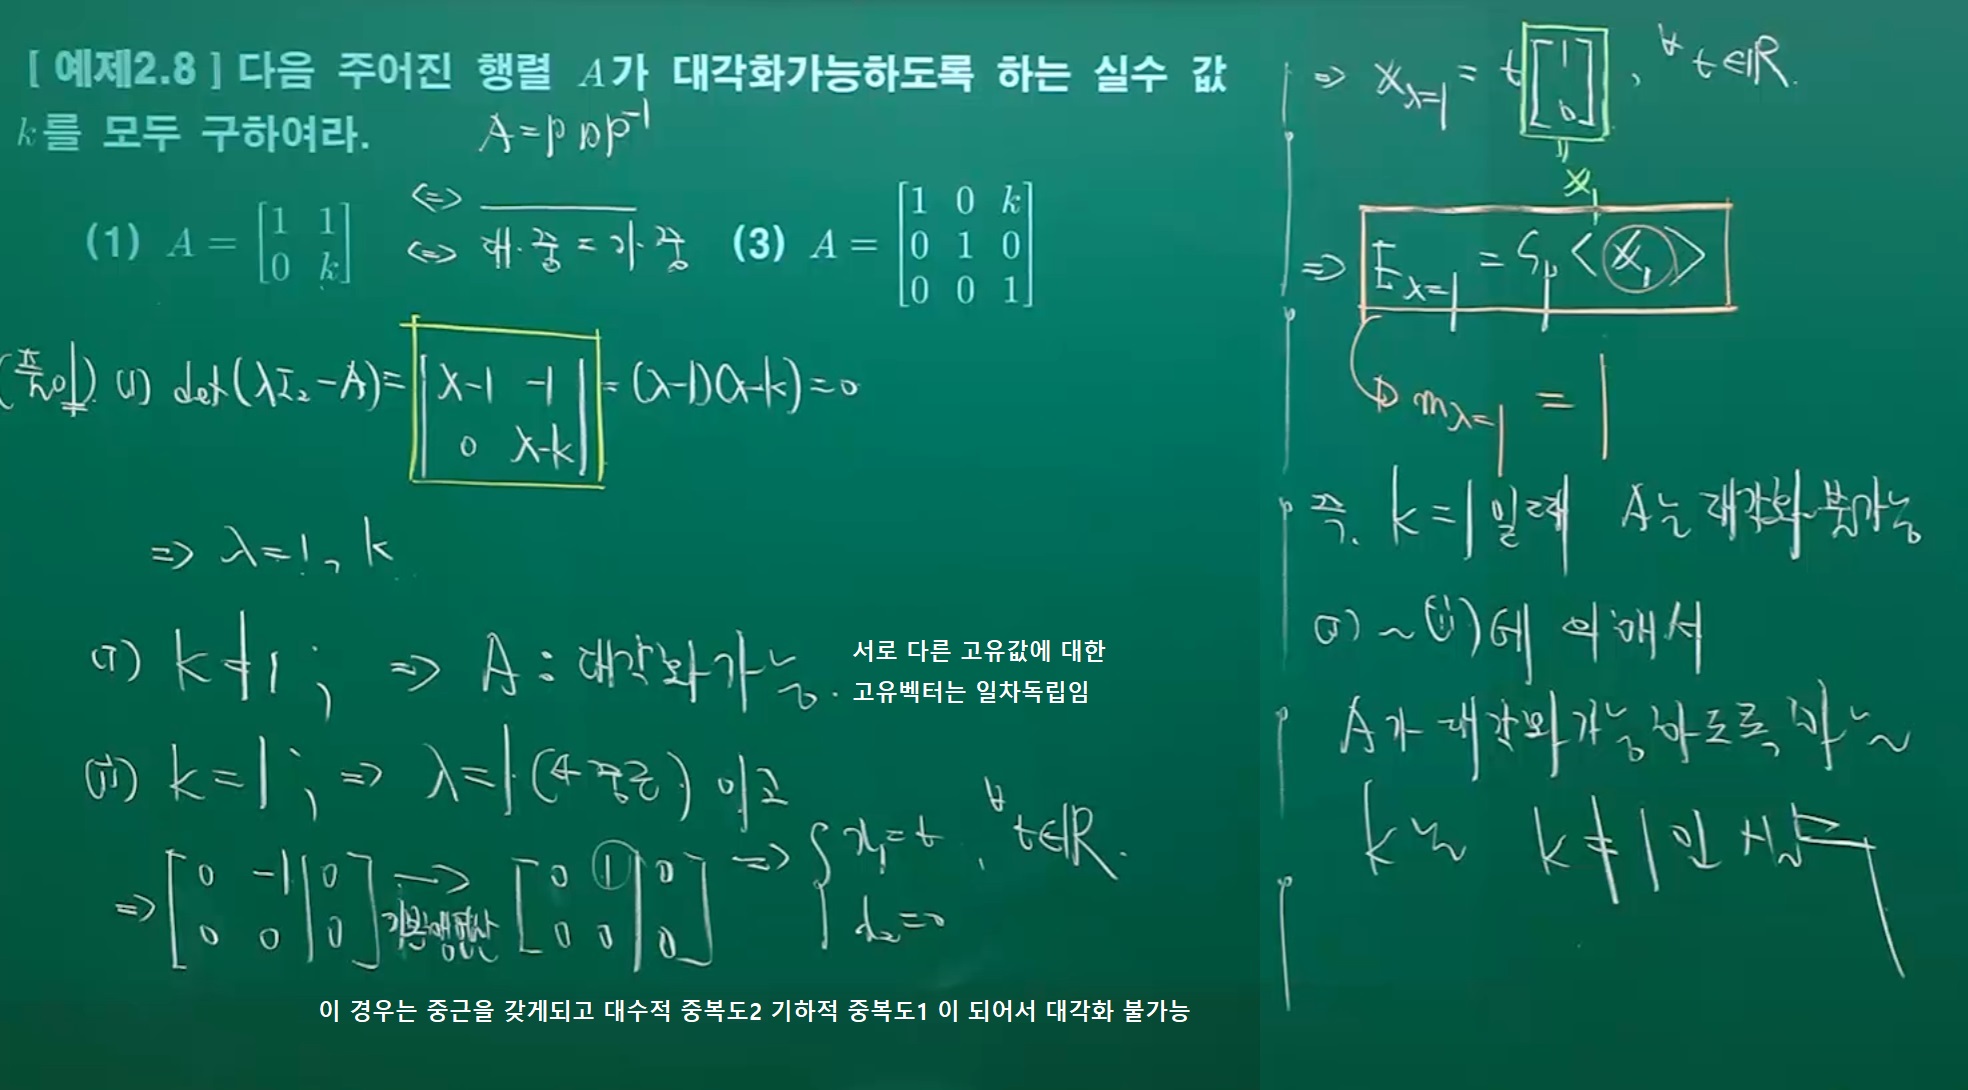 [ 예제2.8 ] 다음 주어진 행렬 A가 대각화가능하도록 하는 실수 값
k를 모두 구하여라.
A = P D P⁻¹
(1) A = [1 1; 0 k]
⇔
⇔ 대·중 = 기·중
(3) A = [1 0 k; 0 1 0; 0 0 1]
(풀이) (1) det(λI₂-A) = |λ-1 -1; 0 λ-k| = (λ-1)(λ-k) = 0
⇒ λ=1, k
(i) k≠1 ; ⇒ A : 대각화가능.
서로 다른 고유값에 대한
고유벡터는 일차독립임
(ii) k=1 ; ⇒ λ=1 (중근) 이고
⇒ [0 -1 | 0; 0 0 | 0] → 기본행연산 [0 1 | 0; 0 0 | 0] ⇒ { x₁=t, x₂=0 , ∀t∈ℝ.
이 경우는 중근을 갖게되고 대수적 중복도2 기하적 중복도1 이 되어서 대각화 불가능
⇒ x_λ=1 = t [1; 0] , ∀t∈ℝ.
∥
x₁
⇒ E_λ=1 = Sp<x₁>
m_λ=1 = 1
즉. k=1일때 A는 대각화 불가능
(i) ~ (ii)에 의해서
A가 대각화가능하도록 하는
k는 k≠1인 실수